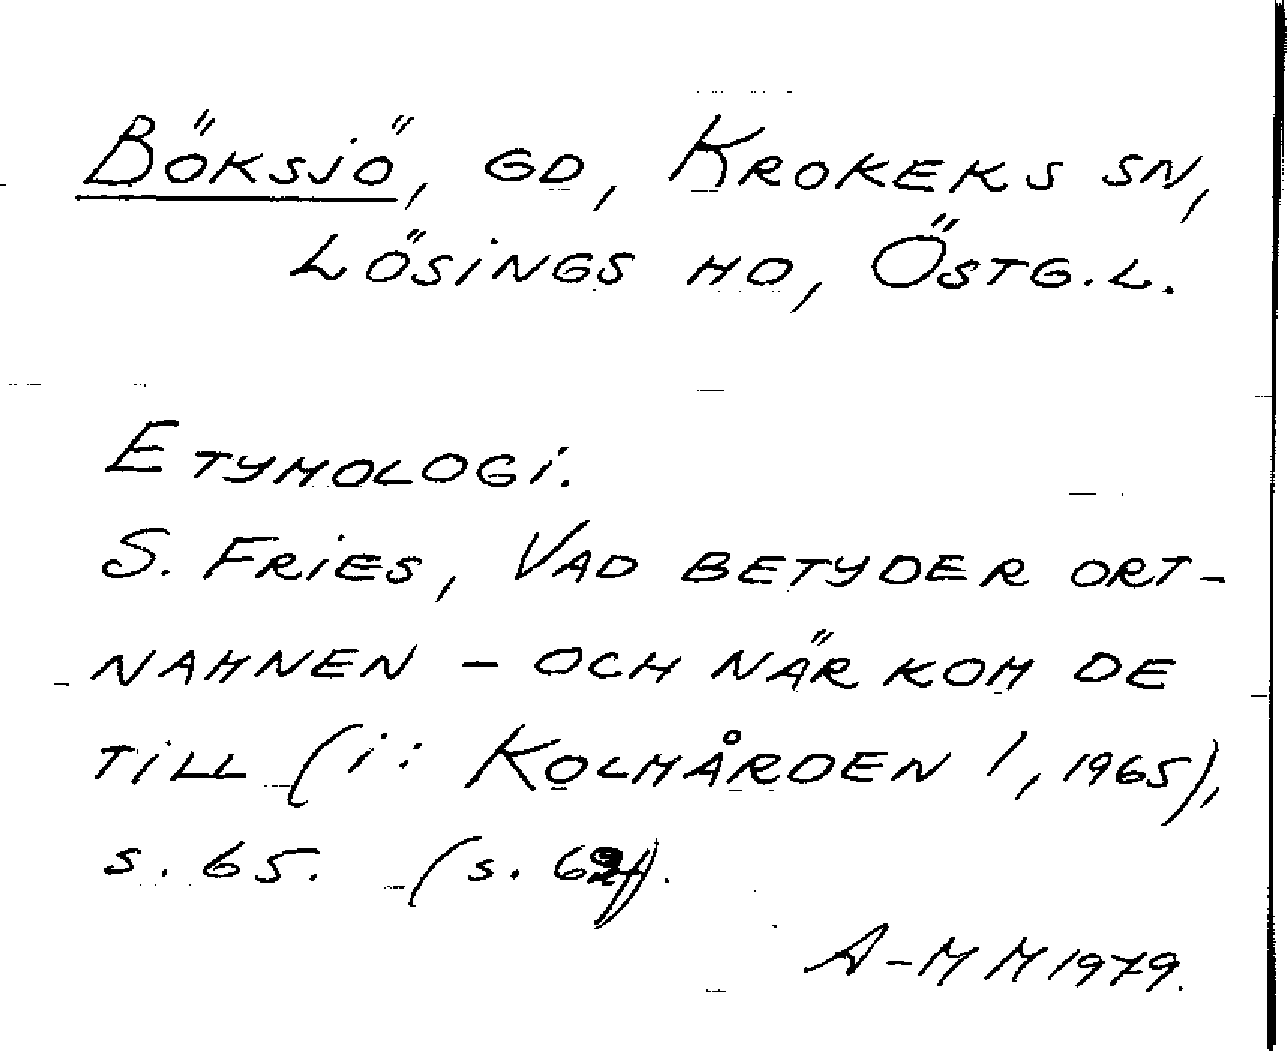 Böksjö, gd, Krokeks sn,
Lösings hd, Östg.l.
Etymologi.
S. Fries, Vad betyder ort-
namnen - och när kom de
till (i: Kolmården 1, 1965),
s. 65. (s. 62f).
A-M M 1979.